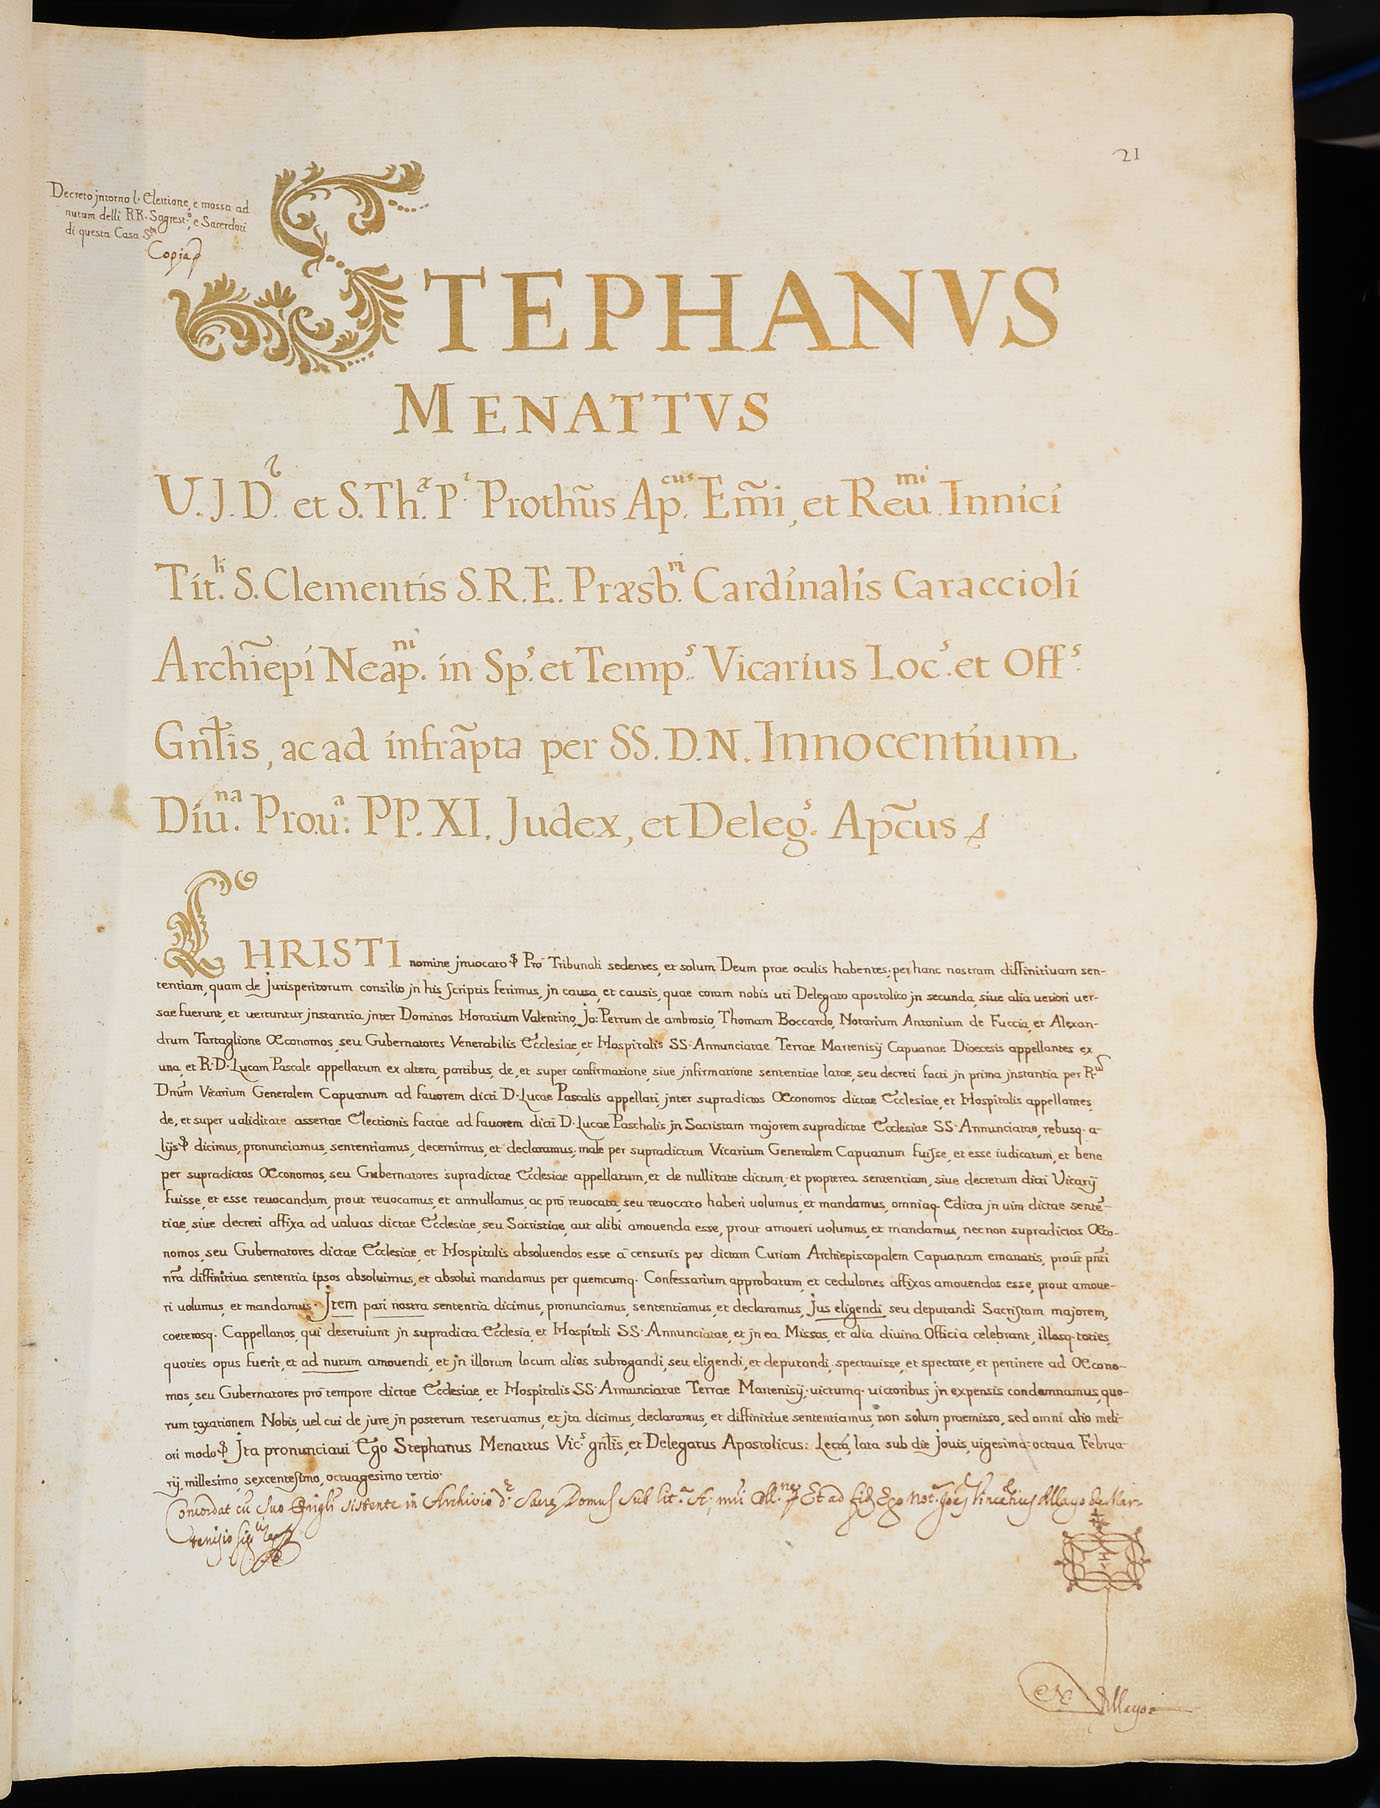 21
Decreto jntorno l' Elettione, e mossa ad
nutum delli RR. Sagrest.ⁿ, e Sacerdoti
di questa Casa S.ᵗᵃ
Copja
STEPHANVS
MENATTVS
U. J. D. et S. Th.æ P. Prothũs Ap.cus Em̃i, et Reu.mi Innici
Tit.li S. Clementis S. R. E. Præsb.ri Cardinalis Caraccioli
Archĩepi Neap.ni in Sp.s et Temp.s Vicarius Loc.s et Off.s
Gnĩis, ac ad infrãpta per SS. D. N. Innocentium
Diu.na Prou.a PP. XI. Judex, et Deleg.s Ap̃cus
CHRISTI nomine jnuocato Pro Tribunali sedentes, et solum Deum prae oculis habentes; per hanc nostram diffinitiuam sen-
tentiam, quam de jurisperitorum consilio jn his scriptis ferimus, jn causa, et causis, quae coram nobis uti Delegato apostolico jn secunda, siue alia ueriori uer-
sae fuerunt, et uertuntur jnstantia jnter Dominos Horatium Valentino, Jo: Petrum de ambrosio, Thomam Boccardo, Notarium Antonium de Fuccia, et Alexan-
drum Tartaglione Œconomos, seu Gubernatores Venerabilis Ecclesiae, et Hospitalis SS. Annunciatae Terrae Martenisij Capuanae Dioecesis appellantes ex
una, et R. D. Lucam Pascale appellatum ex altera, partibus, de, et super confirmatione, siue jnfirmatione sententiae latae, seu decreti facti jn prima jnstantia per R.um
Dnũm Vicarium Generalem Capuanum ad fauorem dicti D. Lucae Pascalis appellati, jnter supradictos Œconomos dictae Ecclesiae, et Hospitalis appellantes
de, et super ualiditate assertae Electionis factae ad fauorem dicti D. Lucae Paschalis jn Sacristam majorem supradictae Ecclesiae SS. Annunciatae, rebusq. a-
lijs dicimus, pronunciamus, sententiamus, decernimus, et declaramus; male per supradictum Vicarium Generalem Capuanum fuisse, et esse iudicatum, et bene
per supradictos Œconomos, seu Gubernatores supradictae Ecclesiae appellatum, et de nullitate dictum, et propterea sententiam, siue decretum dicti Vicarij
fuisse, et esse reuocandum, prout reuocamus, et annullamus, ac pro reuocata, seu reuocato haberi uolumus, et mandamus, omniaq. Edicta jn uim dictae sentẽ-
tiae, siue decreti affixa ad ualuas dictae Ecclesiae, seu Sacristiae, aut alibi amouenda esse, prout amoueri uolumus, et mandamus, nec non supradictos Œco-
nomos, seu Gubernatores dictae Ecclesiae, et Hospitalis absoluendos esse à censuris per dictam Curiam Archiepiscopalem Capuanam emanatis, prout pñti
nrã diffinitiua sententia ipsos absoluimus, et absolui mandamus per quemcumq. Confessarium approbatum, et cedulones affixos amouendos esse, prout amoue-
ri uolumus, et mandamus. Jtem pari nostra sententia dicimus, pronunciamus, sententiamus, et declaramus, jus eligendi, seu deputandi Sacristam majorem,
coeterosq. Cappellanos, qui deseruiunt jn supradicta Ecclesia, et Hospitali SS. Annunciatae, et jn ea Missas, et alia diuina Officia celebrant, illosq. toties,
quoties opus fuerit, et ad nutum amouendi, et jn illorum locum alios subrogandi, seu eligendi, et deputandi, spectauisse, et spectare, et pertinere ad Œcono-
mos, seu Gubernatores pro tempore dictae Ecclesiae, et Hospitalis SS. Annunciatae Terrae Martenisij, uictumq. uictoribus jn expensis condemnamus, quo-
rum taxationem Nobis, uel cui de jure jn posterum reseruamus, et jta dicimus, declaramus, et diffinitiue sententiamus, non solum praemisso, sed omni alio meli-
ori modo Jta pronunciaui Ego Stephanus Menattus Vic.s gnĩis, et Delegatus Apostolicus. Lecta, lata sub die jouis, uigesima octaua Februa
rij, millesimo, sexcentesimo, octuagesimo tertio.
Concordat cũ suo Origli sistente in Archivio d.æ Sacræ Domus sub lit.a A; Et ad fid. Ego Not. Joẽs Vincẽtius Allayo de Mar-
tenisio
Allayo